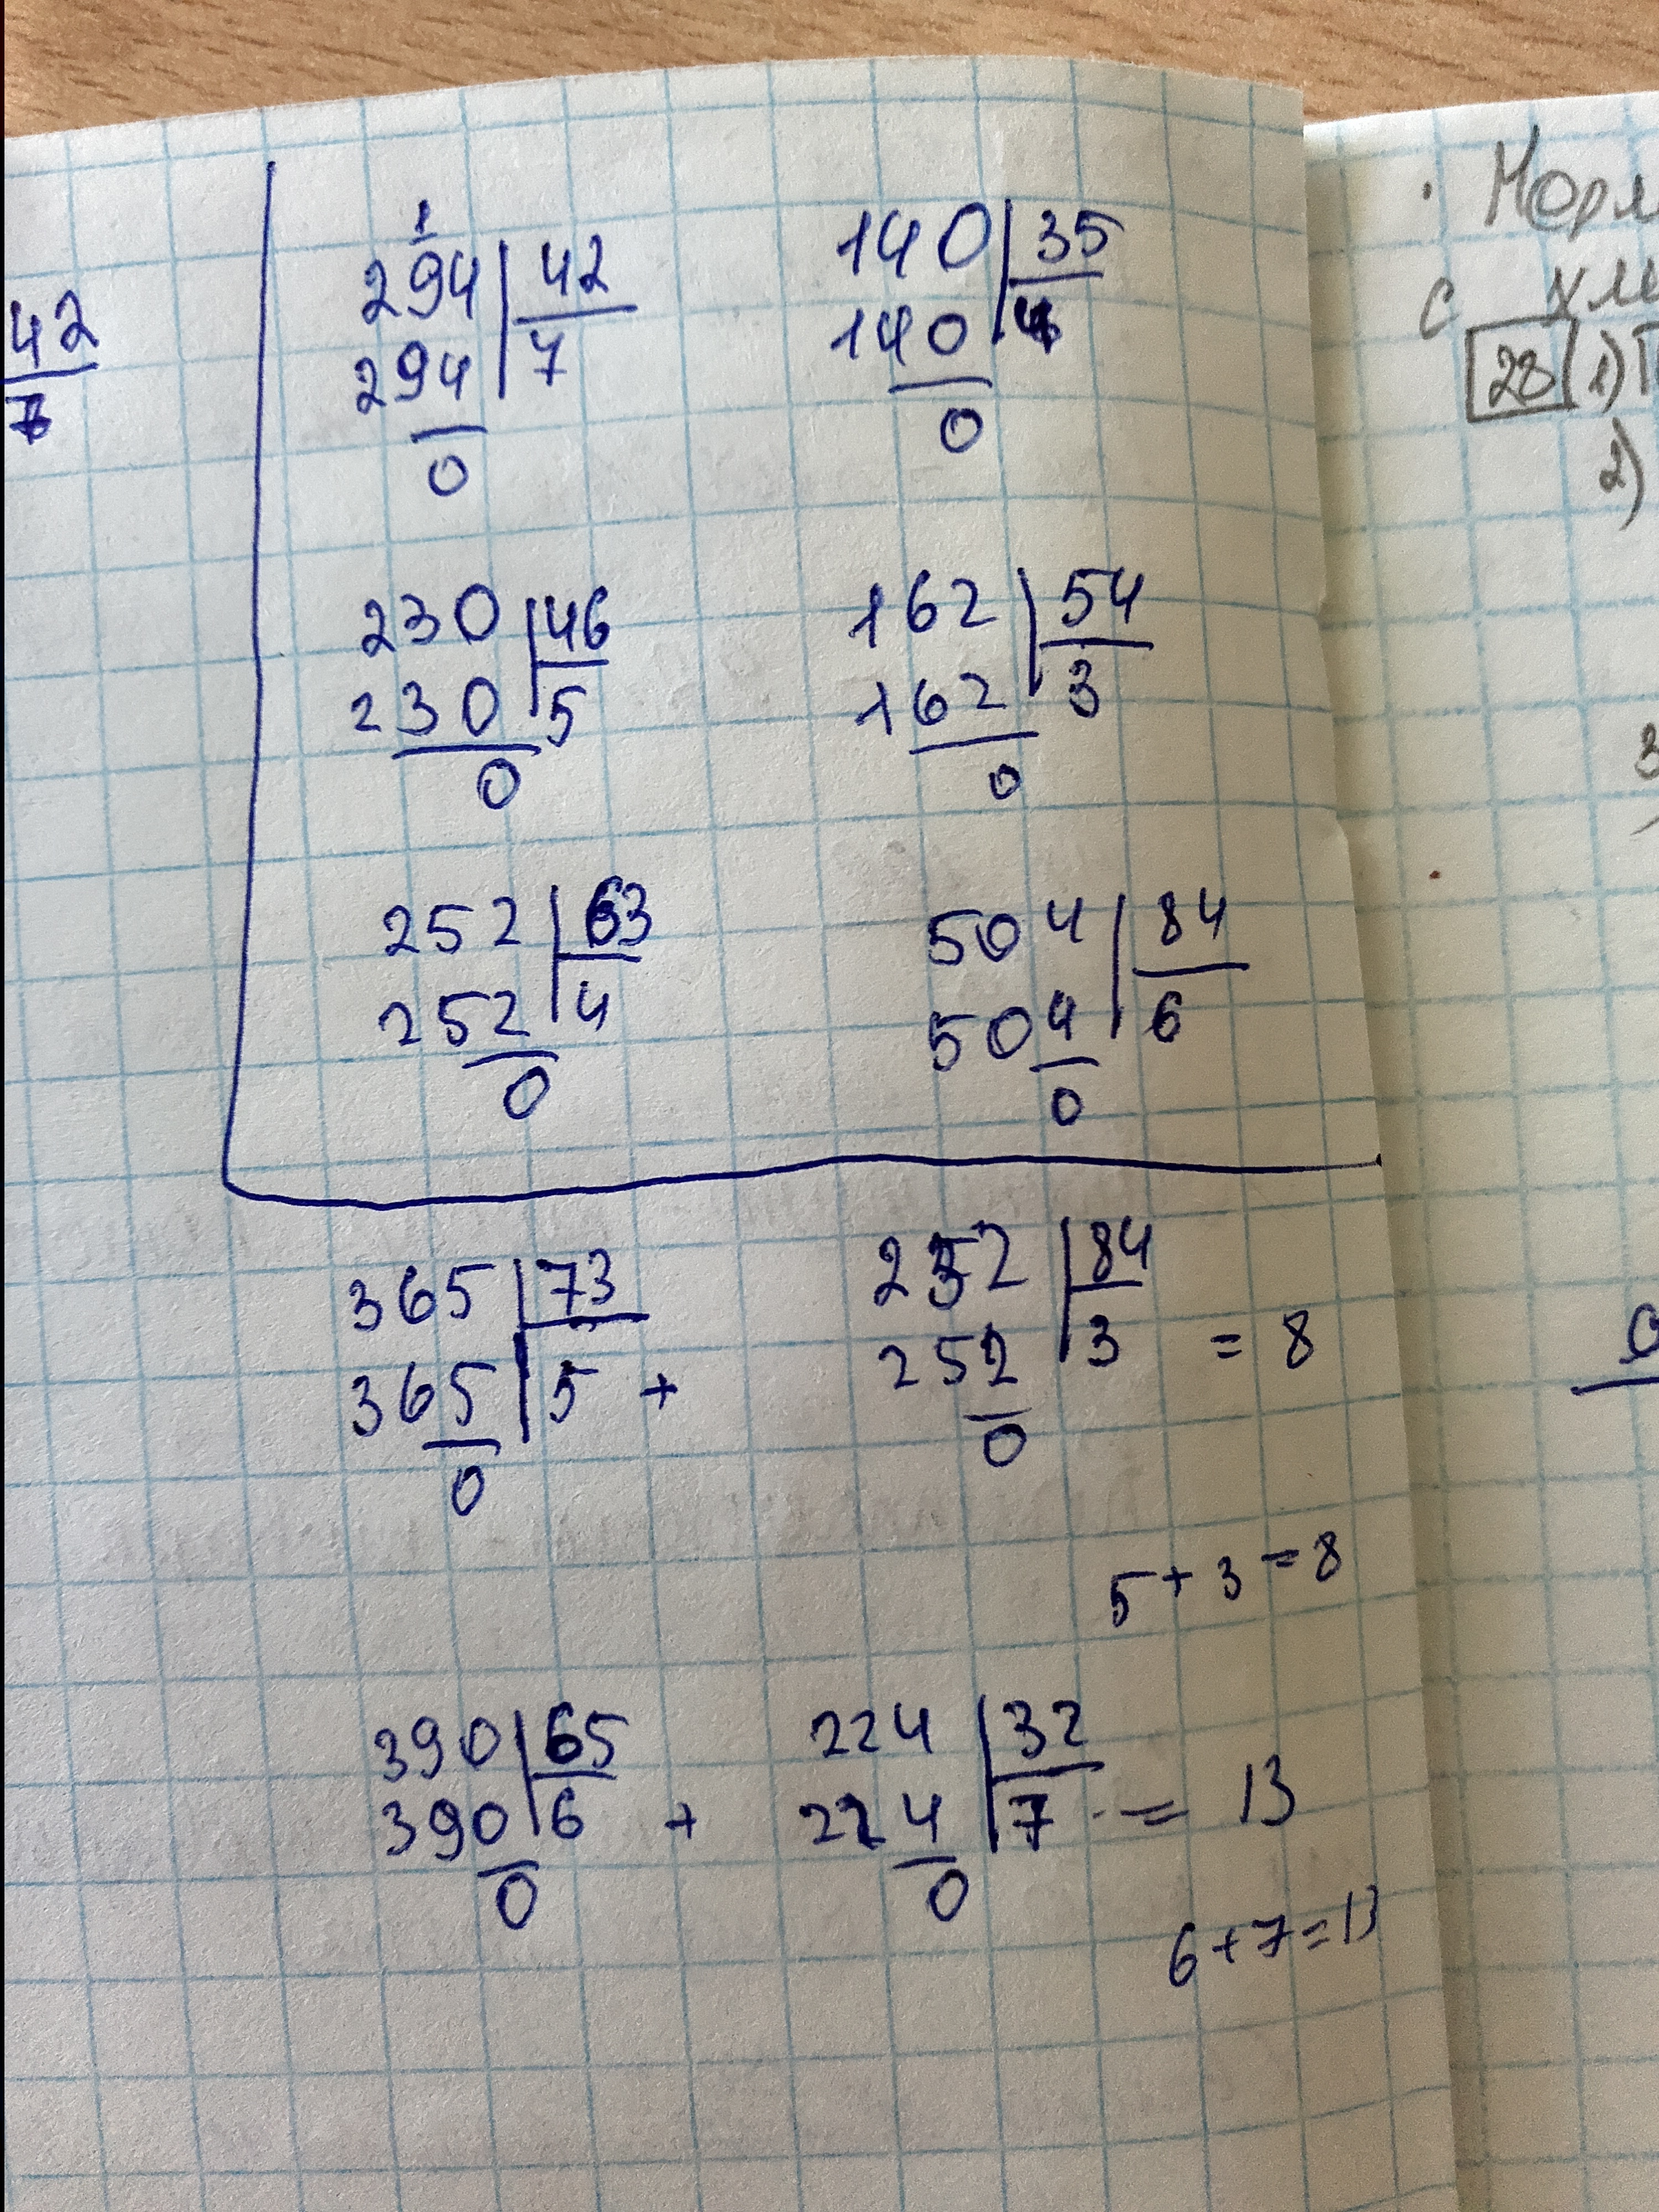 42
7
1
294 42
294 7
0
140 35
140 4
0
230 46
230 5
0
162 54
162 3
0
252 63
252 4
0
504 84
504 6
0
365 73
365 5 +
0
252 84
252 3 = 8
0
5 + 3 = 8
390 65
390 6 +
0
224 32
224 7 = 13
0
6 + 7 = 13
с
28 1)
2)